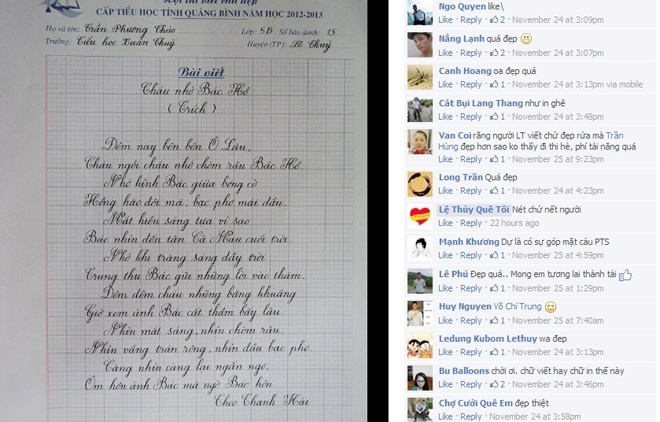 CẤP TIỂU HỌC TỈNH QUẢNG BÌNH NĂM HỌC 2012-2013
Họ và tên: Trần Phương Thảo Lớp: 5B Số báo danh: 13
Trường: Tiểu học Xuân Thuỷ Huyện (TP): Lệ Thuỷ
Bài viết
Cháu nhớ Bác Hồ
( Trích )
Đêm nay bên bến Ô Lâu,
Cháu ngồi cháu nhớ chòm râu Bác Hồ.
Nhớ hình Bác giữa bóng cờ
Hồng hào đôi má, bạc phơ mái đầu.
Mắt hiền sáng tựa vì sao
Bác nhìn đến tận Cà Mau cuối trời.
Nhớ khi trăng sáng đầy trời
Trung thu Bác gửi những lời vào thăm.
Đêm đêm cháu những bâng khuâng
Giở xem ảnh Bác cất thầm bấy lâu
Nhìn mắt sáng, nhìn chòm râu,
Nhìn vầng trán rộng, nhìn đầu bạc phơ.
Càng nhìn càng lại ngẩn ngơ,
Ôm hôn ảnh Bác mà ngờ Bác hôn.
Theo Thanh Hải
Ngo Quyen like\
Like · Reply · 2 · November 24 at 3:09pm
Nắng Lạnh quá đẹp
Like · Reply · 2 · November 24 at 3:07pm
Canh Hoang oa đẹp quá
Like · Reply · 1 · November 24 at 3:13pm via mobile
Cát Bụi Lang Thang như in ghê
Like · Reply · 1 · November 24 at 3:48pm
Van Coi răng người LT viết chứ đẹp rứa mà Trần
Hùng đẹp hơn sao ko thấy đi thi hè, phí tài năng quá
Like · Reply · 1 · November 25 at 9:23pm
Long Trần Quá đẹp
Like · Reply · 1 · November 24 at 4:23pm
Lệ Thủy Quê Tôi Nét chứ nết người
Like · Reply · 22 hours ago
Mạnh Khương Dự là có sự góp mặt cảu PTS
Like · Reply · 1 · November 25 at 4:59pm
Lê Phú Đẹp quá.. Mong em tương lai thành tài
Like · Reply · 1 · November 25 at 1:29pm
Huy Nguyen Võ Chí Trung
Like · Reply · 1 · November 25 at 7:40am
Ledung Kubom Lethuy wa đep
Like · Reply · 1 · November 24 at 3:13pm
Bu Balloons chời ơi. chữ viết hay chữ in thế này
Like · Reply · 2 · November 24 at 3:46pm
Chợ Cưới Quê Em đẹp thiệt
Like · Reply · November 24 at 3:58pm